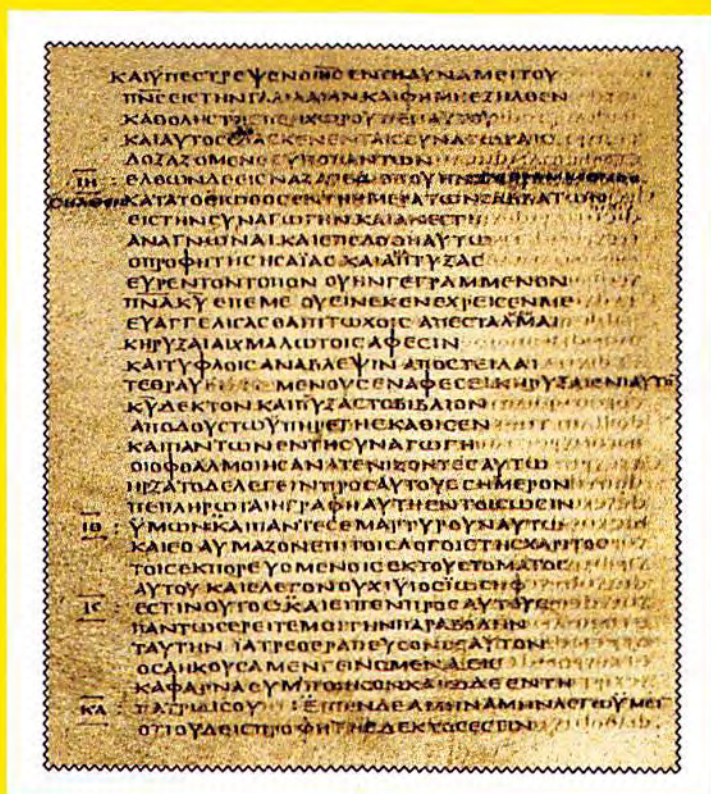 ΚΑΙΫΠΕϹΤΡΕΨΕΝΟΙΗϹΕΝΤΗΔΥΝΑΜΕΙΤΟΥ
ΠΝϹΕΙϹΤΗΝΓΑΛΙΛΑΙΑΝΚΑΙΦΗΜΗΕΞΗΛΘΕΝ
ΚΑΘΟΛΗϹΤΗϹΠΕΡΙΧΩΡΟΥΠΕΡΙΑΥΤΟΥ
ΚΑΙΑΥΤΟϹΕΔΙΔΑϹΚΕΝΕΝΤΑΙϹϹΥΝΑΓΩΓΑΙϹ
ΔΟΞΑΖΟΜΕΝΟϹΥΠΟΠΑΝΤΩΝ
ΙΗ : ΕΛΘΩΝΔΕΕΙϹΝΑΖΑΡΕΔΟΠΟΥΗΝ
ΚΑΤΑΤΟΕΙΩΘΟϹΕΝΤΗΗΜΕΡΑΤΩΝϹΑΒΒΑΤΩΝ
ΕΙϹΤΗΝϹΥΝΑΓΩΓΗΝΚΑΙΑΝΕϹΤΗ
ΑΝΑΓΝΩΝΑΙΚΑΙΕΠΕΔΟΘΗΑΥΤΩ
ΟΠΡΟΦΗΤΗϹΗϹΑΪΑϹΚΑΙΑΠΤΥΞΑϹ
ΕΥΡΕΝΤΟΝΤΟΠΟΝΟΥΗΝΓΕΓΡΑΜΜΕΝΟΝ
ΠΝΑΚΥΕΠΕΜΕΟΥΕΙΝΕΚΕΝΕΧΡΕΙϹΕΝΜΕ
ΕΥΑΓΓΕΛΙϹΑϹΘΑΙΠΤΩΧΟΙϹΑΠΕϹΤΑΛΜΑΙ
ΚΗΡΥΞΑΙΑΙΧΜΑΛΩΤΟΙϹΑΦΕϹΙΝ
ΚΑΙΤΥΦΛΟΙϹΑΝΑΒΛΕΨΙΝΑΠΟϹΤΕΙΛΑΙ
ΤΕΘΡΑΥ ΜΕΝΟΥϹΕΝΑΦΕϹΕΙΚΗΡΥΞΑΙΕΝΙΑΥΤΟ
ΚΥΔΕΚΤΟΝΚΑΙΠΤΥΞΑϹΤΟΒΙΒΛΙΟΝ
ΑΠΟΔΟΥϹΤΩΫΠΗΡΕΤΗΕΚΑΘΙϹΕΝ
ΚΑΙΠΑΝΤΩΝΕΝΤΗϹΥΝΑΓΩΓΗ
ΟΙΟΦΘΑΛΜΟΙΗϹΑΝΑΤΕΝΙΖΟΝΤΕϹΑΥΤΩ
ΗΡΞΑΤΟΔΕΛΕΓΕΙΝΠΡΟϹΑΥΤΟΥϹϹΗΜΕΡΟΝ
ΠΕΠΛΗΡΩΤΑΙΗΓΡΑΦΗΑΥΤΗΕΝΤΟΙϹΩϹΕΙΝ
ΙΘ : ΫΜΩΝΚΑΙΠΑΝΤΕϹΕΜΑΡΤΥΡΟΥΝΑΥΤΩ
ΚΑΙΕΘΑΥΜΑΖΟΝΕΠΙΤΟΙϹΛΟΓΟΙϹΤΗϹΧΑΡΙΤΟϹ
ΤΟΙϹΕΚΠΟΡΕΥΟΜΕΝΟΙϹΕΚΤΟΥϹΤΟΜΑΤΟϹ
ΑΥΤΟΥΚΑΙΕΛΕΓΟΝΟΥΧΙΫΙΟϹΪΩϹΗΦ
ΕϹΤΙΝΟΥΤΟϹΚΑΙΕΙΠΕΝΠΡΟϹΑΥΤΟΥϹ
ΠΑΝΤΩϹΕΡΕΙΤΕΜΟΙΤΗΝΠΑΡΑΒΟΛΗΝ
ΤΑΥΤΗΝΪΑΤΡΕΘΕΡΑΠΕΥϹΟΝϹΕΑΥΤΟΝ
ΟϹΑΗΚΟΥϹΑΜΕΝΓΕΙΝΟΜΕΝΑΕΙϹ
ΚΑΦΑΡΝΑΟΥΜΠΟΙΗϹΟΝΚΑΙΩΔΕΕΝΤΗ
ΚΑ : ΠΑΤΡΙΔΙϹΟΥ : ΕΙΠΕΝΔΕΑΜΗΝΑΜΗΝΛΕΓΩΫΜΕΙ
ΟΤΙΟΥΔΕΙϹΠΡΟΦΗΤΗϹΔΕΚΤΟϹΕϹΤΙΝ